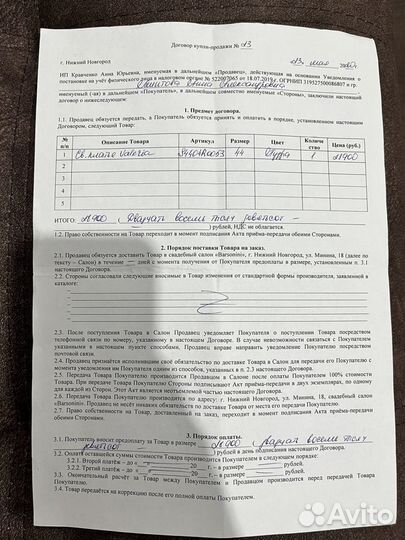 Договор купли-продажи № 13
г. Нижний Новгород
13 мая
ИП Кравченко Анна Юрьевна, именуемая в дальнейшем «Продавец», действующая на основании Уведомления о
постановке на учёт физ. лица в налоговом органе № 522007065 от 18.07.2019 г. ОГРНИП 319527500086807 и гр.
Александровна
именуемый (-ая) в дальнейшем «Покупатель», в дальнейшем совместно именуемые «Стороны», заключили настоящий
договор о нижеследующем:
1. Предмет договора.
1.1. Продавец обязуется передать, а Покупатель обязуется принять и оплатить в порядке, установленном настоящим
Договором, следующий Товар:
№ п/п Описание Товара Артикул Размер Цвет Количество Цена (руб.)
1 Св. платье Valeria 44 Пудра 1 28900
2
3
4
5
ИТОГО: 28900 (Двадцать восемь тысяч девятьсот
) рублей, НДС не облагается.
1.2. Право собственности на Товар переходит в момент подписания Акта приёма-передачи обеими Сторонами.
2. Порядок поставки Товара на заказ.
2.1. Продавец обязуется доставить Товар в свадебный салон «Barsonini», г. Нижний Новгород, ул. Минина, 18 (далее по
тексту – Салон) в течение — дней с момента получения от Покупателя предоплаты в размере, установленном п. 3.1
настоящего Договора.
2.2. Стороны согласовали следующие вносимые в Товар изменения от стандартной формы производителя, заявленной в
каталоге:
2.3. После поступления Товара в Салон Продавец уведомляет Покупателя о поступлении Товара посредством
телефонной связи по номеру, указанному в настоящем Договоре. В случае невозможности связаться с Покупателем
указанными в настоящем пункте способами, Продавец вправе направить уведомление Покупателю посредством
почтовой связи.
2.4. Продавец признаётся исполнившим своё обязательство по доставке Товара в Салон для передачи его Покупателю с
момента уведомления им Покупателя одним из способов, указанных в п. 2.3 настоящего Договора.
2.5. Передача Товара Покупателю производится Продавцом в Салоне после оплаты Покупателем 100% стоимости
Товара. При передаче Товара Покупателю Стороны подписывают Акт приёма-передачи в двух экземплярах, по одному
для каждой из Сторон. Этот Акт является неотъемлемой частью настоящего Договора.
2.6. Передача Товара Покупателю производится по адресу: г. Нижний Новгород, ул. Минина, 18, свадебный салон
«Barsonini». Продавец не несёт никаких обязательств по доставке Товара от места его передачи Покупателю.
2.7. Право собственности на Товар, доставленный на заказ, переходит в момент подписания Акта приёма-передачи
обеими Сторонами.
3. Порядок оплаты.
3.1. Покупатель вносит предоплату за Товар в размере 28900 (Двадцать восемь тысяч
девятьсот ) рублей в день подписания настоящего Договора.
3.2. Оплата оставшейся суммы стоимости Товара производится Покупателем в следующем порядке:
3.2.1. Второй платёж – до « » 20 г. – в размере рублей.
3.2.2. Третий платёж – до « » 20 г. – в размере рублей.
3.3. Окончательный расчёт за Товар между Покупателем и Продавцом производится перед передачей Товара
Покупателю.
3.4. Товар передаётся на корректировку после его полной оплаты Покупателем.
Avito